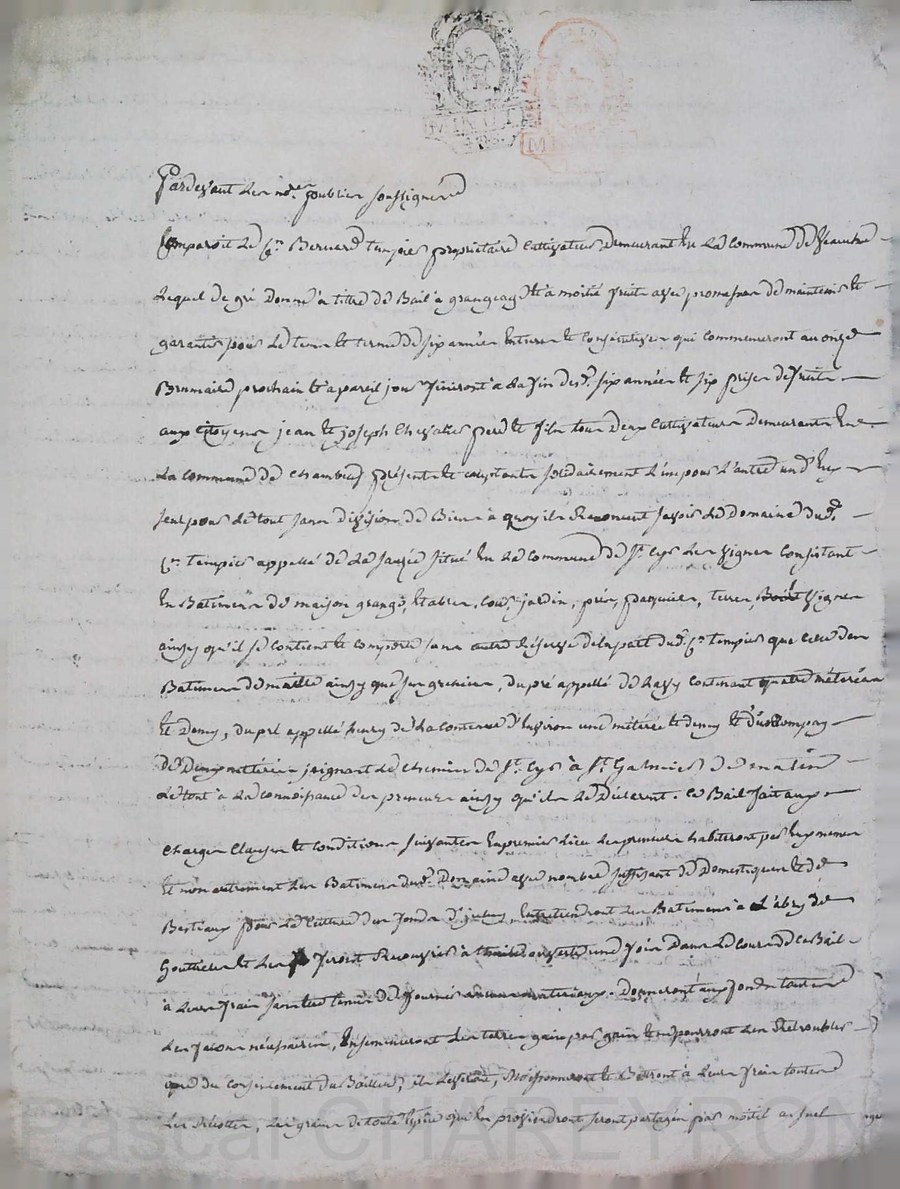 Pardevant les nores publics soussignés
Comparoit le Cn Bernard tempier propriétaire cultivateur demeurant en la commune de
Lequel de gré donne à titre de Bail à grangeage et à moitié fruits avec promesse de maintenir et
garantir pour le tems et terme de six années entieres et consécutives qui commenceront au onze
Brumaire prochain et a pareil jour finiront a la fin desd. six années et six prises de fruits
aux Citoyens jean et joseph Chevalier pere et fils tous deux cultivateurs demeurants en
la commune de Chambeuf présents et acceptants solidairement l'un pour l'autre un d'eux
seul pour le tout sans division de Biens à quoy ils Renoncent savoir le Domaine dud.
Cn tempier appellé de la situé en la commune de St Cyr les Vignes Consistant
en Batimens de maison grange, Etables, Cour, jardin, prés, pasquier, terres, Bois Vignes
ainsy qu'il se contient et comporte sans autre Réserve de la part dud. Cn tempier que celle des
Batimens de maitre ainsy que son grenier, du pré appellé de contenant quatre métérées
et demy, du pré appellé de la contenue d'Environ une métérée et demy et d'un
de deux métérées joignant le chemin de St Cyr à St Galmier de matin
Le tout à la connoissance des preneurs ainsy qu'ils le Déclarent. Ce Bail fait aux
Charges Clauses et conditions suivantes En premier lieu les preneurs habiteront par Eux mêmes
Et non autrement les Batimens dud. Domaine avec nombre suffisant de Domestiques et de
Bestiaux pour la Culture des fonds d'iceluy Entretiendront les Batimens à L'abry de
Gouttieres et les feront Recouvrir à une fois dans le cours de ce Bail
à leurs frais sans être tenus de fournir aucuns matériaux. Donneront aux fonds toutes
Les façons nécessaires, Ensemenceront les terres grain par grain et ne pourront les Retroubler
que du consentement du Bailleur, ils Moissonneront et Battront à leurs frais toutes
Les Récoltes, Les grains de toute Espece qui En proviendront seront partagés par moitié au
Pascal CHAREYRON